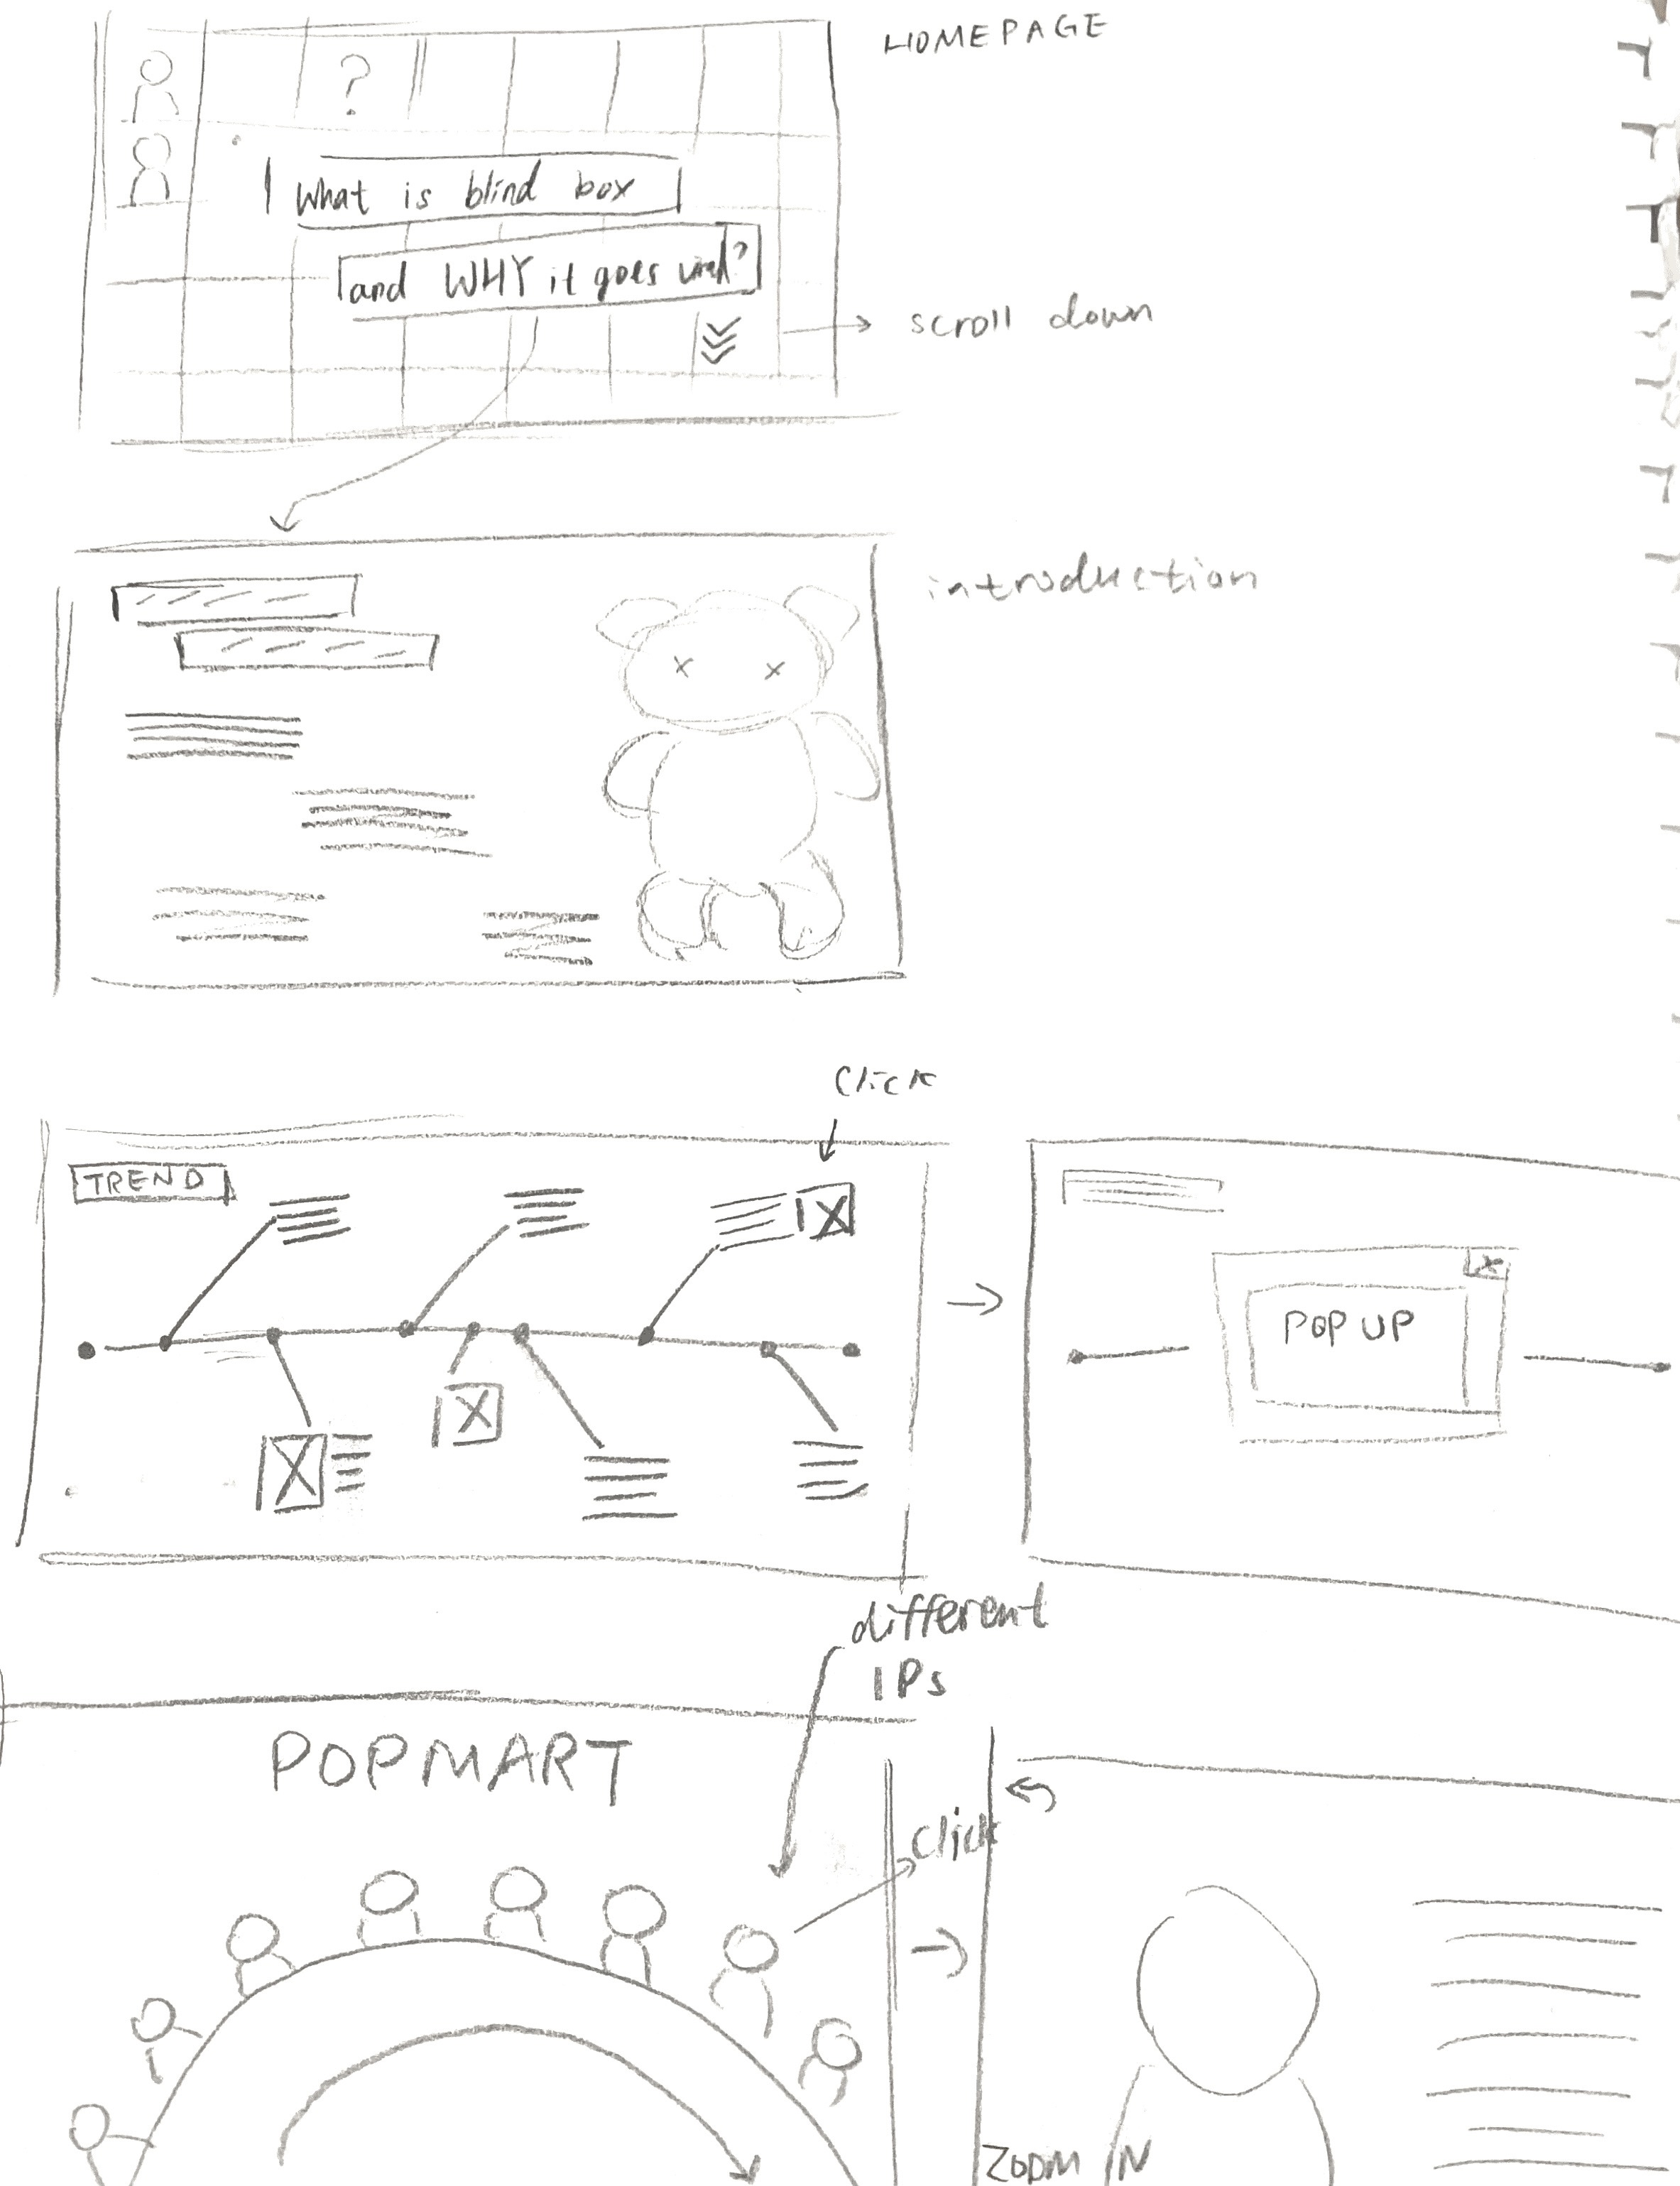 HOMEPAGE
?
What is blind box
and WHY it goes viral?
scroll down
introduction
Click
TREND
POP UP
different
IPs
POPMART
Click
ZOOM IN